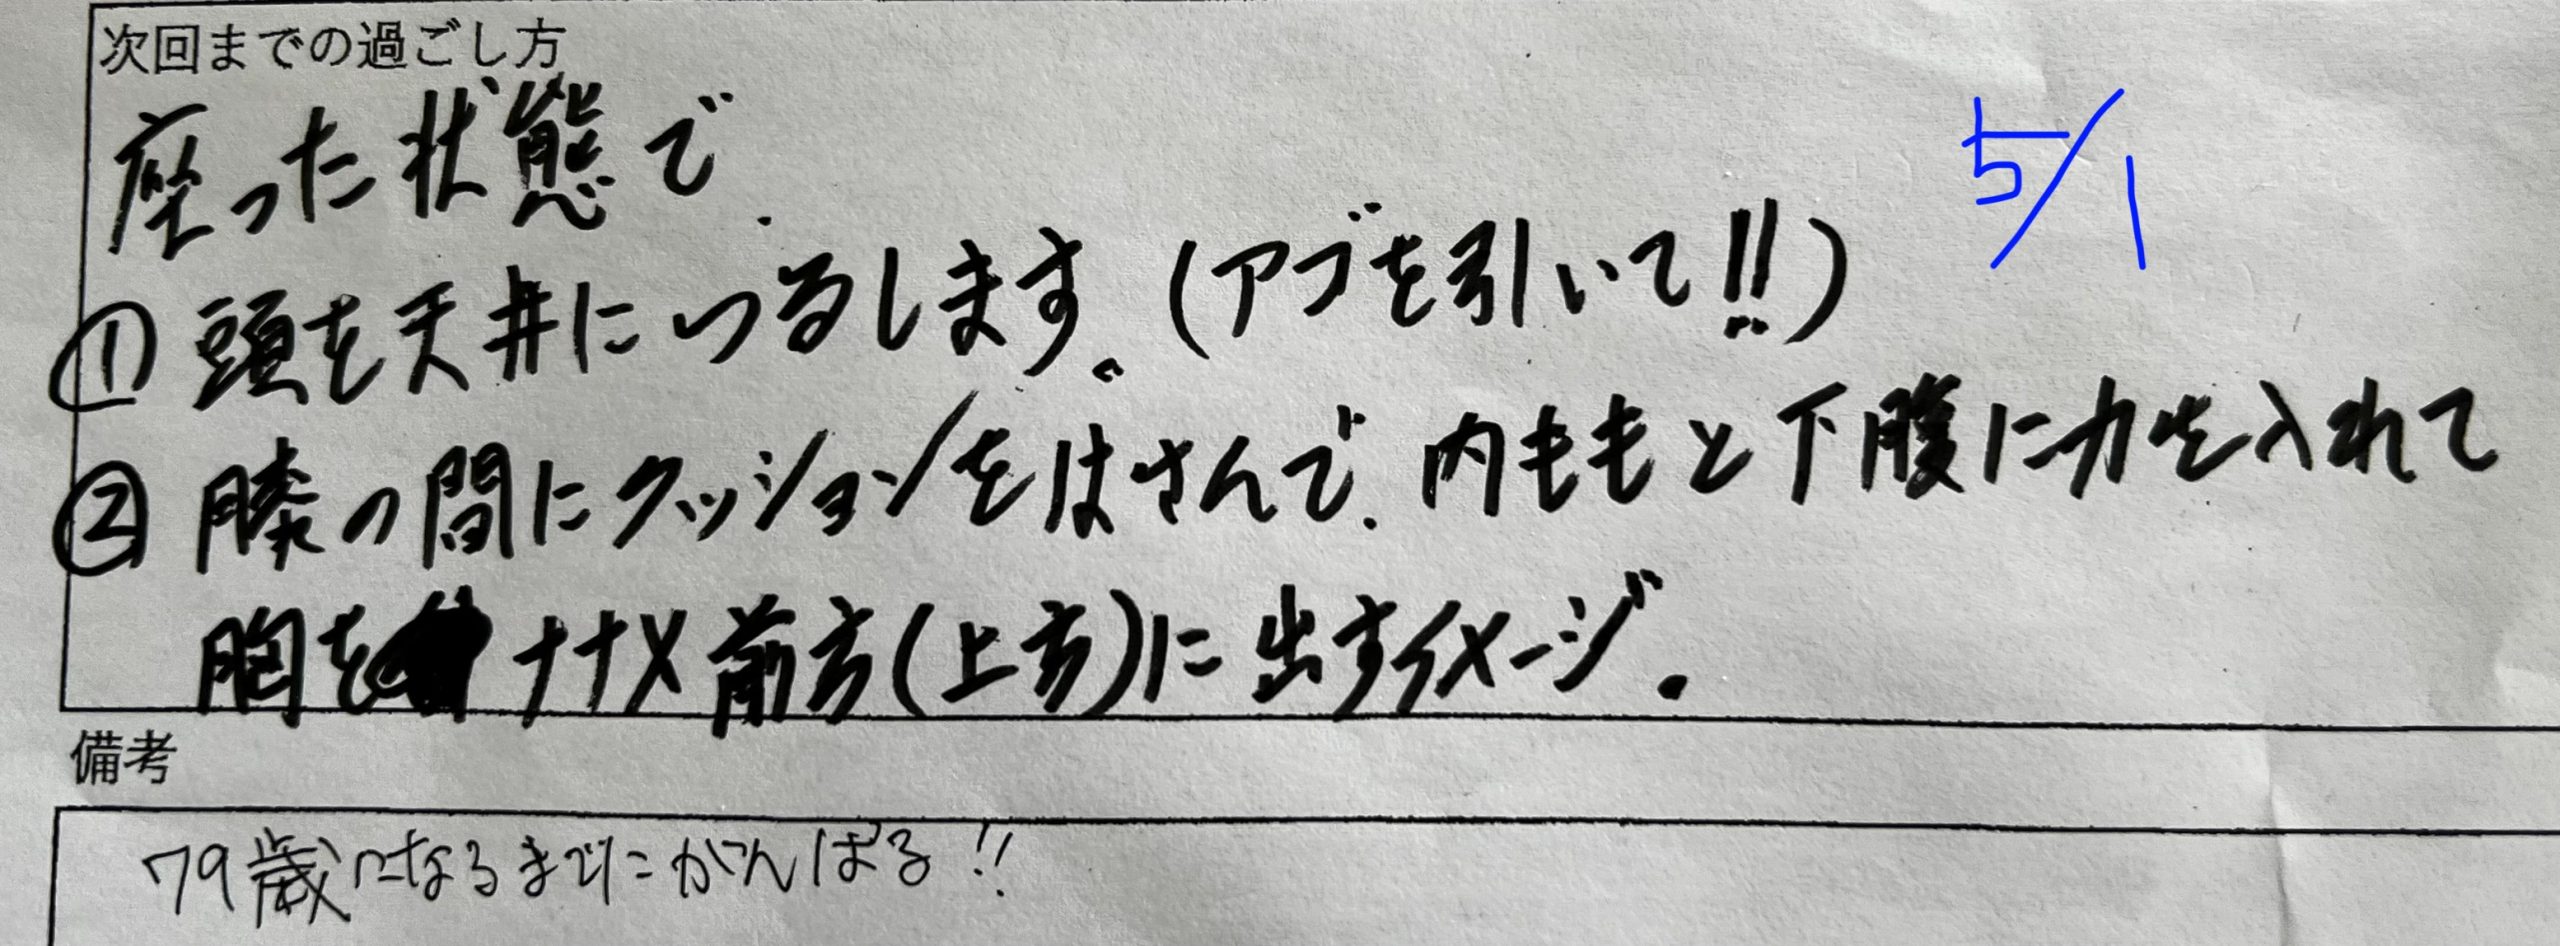 次回までの過ごし方
座った状態で
5/1
① 頭を天井につるします。(アゴを引いて!!)
② 膝の間にクッションをはさんで、内ももと下腹に力を入れて
胸を ナナメ前方(上方)に出すイメージ。
備考
79歳になるまでにがんばる!!